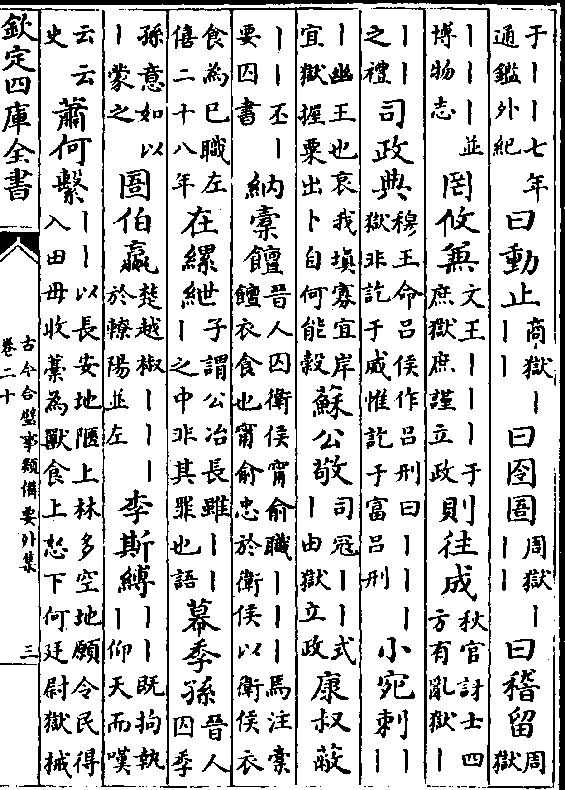 于丨丨七年
通鑑外紀
曰動止
商獄丨
丨丨
曰囹圄
周獄丨
丨丨
曰稽留
周
獄
丨丨丨並
博物志
罔攸兼
文王丨丨丨于
庶獄庶謹立政
則往成
秋官訝士四
方有亂獄丨
丨丨
之禮
司政典
穆王命吕侯作吕刑曰丨丨丨
獄非訖于威惟訖于富吕刑
小宛刺
丨丨
丨幽王也哀我填寡宜岸
宜獄握粟出卜自何能榖
蘇公敬
司冦丨丨式
丨由獄立政
康叔蔽
丨丨丕丨
要囚書
納橐饘
晉人囚衛侯甯俞職丨丨丨馬注橐
饘衣食也甯俞忠於衛侯以衛侯衣
食為已職左
僖二十八年
在縲紲
子謂公冶長雖丨丨
丨之中非其罪也語
幕季孫
晉人
囚季
孫意如以
丨蒙之
圄伯嬴
楚越椒丨丨丨
於轑陽並左
李斯縛
丨丨丨既拘執
丨仰天而嘆
云云
史
蕭何繫
丨丨丨以長安地陿上林多空地願令民得
入田毋收藁為獸食上恕下何廷尉獄械
欽定四庫全書
古今合璧事類備要外集
卷二十
三